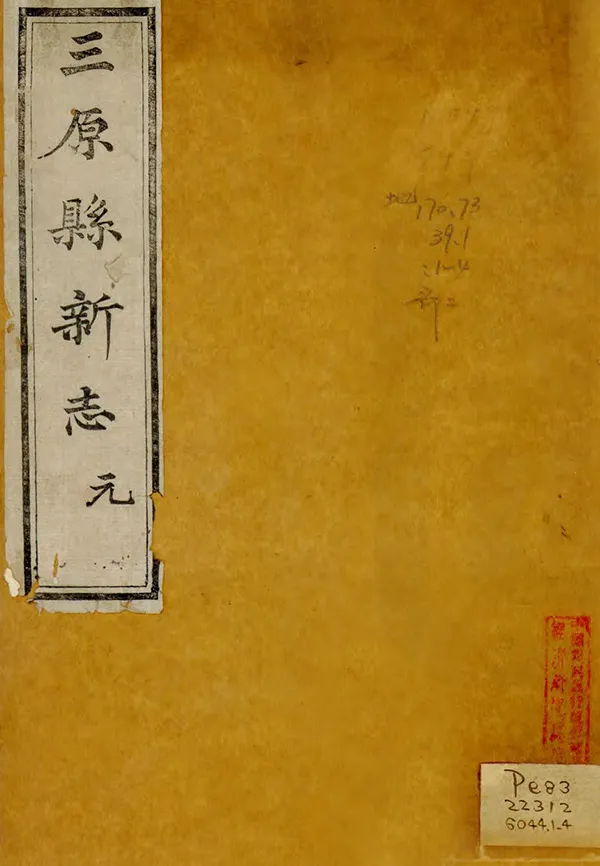 三原縣新志 元
170.73
39.1
:1-4
Pe83
22312
6044.1-4